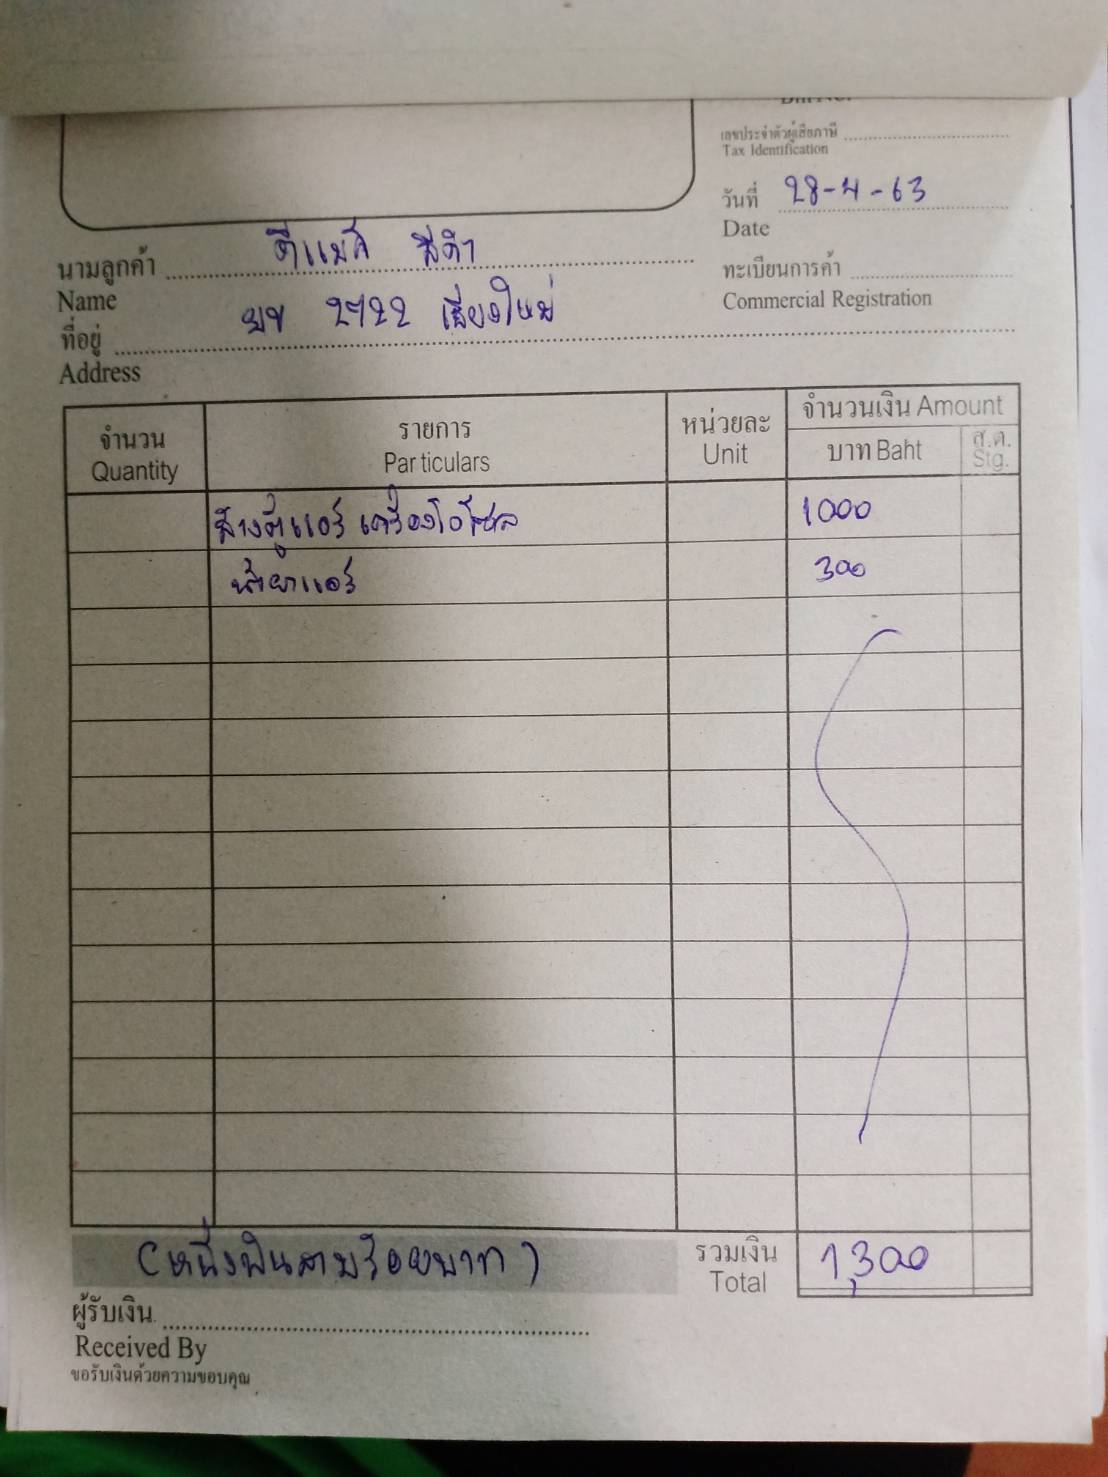 เลขประจำตัวผู้เสียภาษี
Tax Identification
วันที่ 28-4-63
Date
นามลูกค้า ดีแม็ก สีดำ
Name
ทะเบียนการค้า
Commercial Registration
ที่อยู่ 2722 เชียงใหม่
Address
จำนวน
Quantity
รายการ
Particulars
หน่วยละ
Unit
จำนวนเงิน Amount
บาท Baht
ส.ต.
Stg.
ล้างตู้แอร์ เครื่องโอโซน 1000
น้ำยาแอร์ 300
(หนึ่งพันสามร้อยบาท) รวมเงิน 1,300
Total
ผู้รับเงิน
Received By
ขอรับเงินด้วยความขอบคุณ